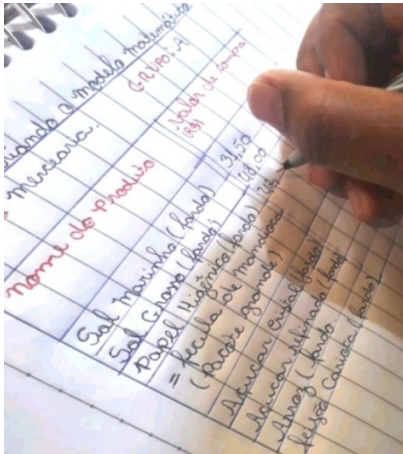 iando o modelo matemático
GRUPO: A
Mercearia.
nome do produto Valor de compra
(R$)
Sal Marinho (fardo) 31,50
Sal Grosso (fardo)
Papel Higiênico (fardo)
= fécula de mandioca
(pacote grande)
Açúcar cristal (fardo)
Açúcar refinado (fardo)
Arroz (fardo
feijão Carioca (fardo)